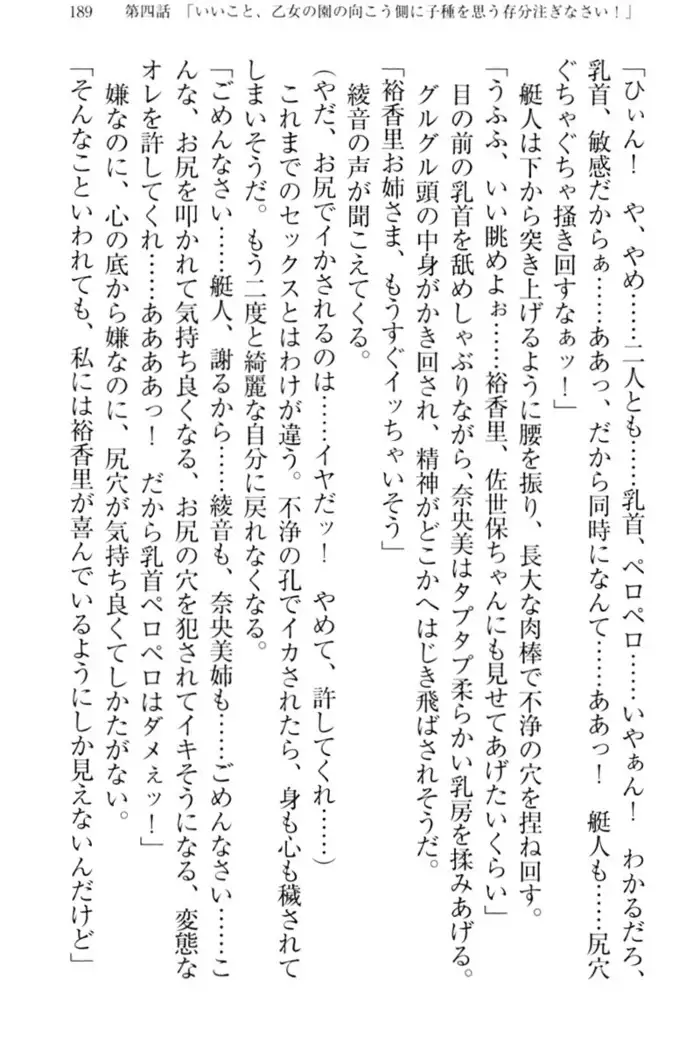 189　第四話　「いいこと、乙女の園の向こう側に子種を思う存分注ぎなさい！」
「ひぃん！　や、やめ……二人とも……乳首、ペロペロ……いやぁん！　わかるだろ、
乳首、敏感だからぁ……ああっ、だから同時になんて……ああっ！　艇人も……尻穴
ぐちゃぐちゃ掻き回すなぁッ！」
　艇人は下から突き上げるように腰を振り、長大な肉棒で不浄の穴を捏ね回す。
「うふふ、いい眺めよぉ……裕香里、佐世保ちゃんにも見せてあげたいくらい」
　目の前の乳首を舐めしゃぶりながら、奈央美はタプタプ柔らかい乳房を揉みあげる。
　グルグル頭の中身がかき回され、精神がどこかへはじき飛ばされそうだ。
「裕香里お姉さま、もうすぐイッちゃいそう」
　綾音の声が聞こえてくる。
（やだ、お尻でイかされるのは……イヤだッ！　やめて、許してくれ……）
　これまでのセックスとはわけが違う。不浄の孔でイカされたら、身も心も穢されて
しまいそうだ。もう二度と綺麗な自分に戻れなくなる。
「ごめんなさい……艇人、謝るから……綾音も、奈央美姉も……ごめんなさい……こ
んな、お尻を叩かれて気持ち良くなる、お尻の穴を犯されてイキそうになる、変態な
オレを許してくれ……ああああっ！　だから乳首ペロペロはダメぇッ！」
　嫌なのに、心の底から嫌なのに、尻穴が気持ち良くてしかたがない。
「そんなこといわれても、私には裕香里が喜んでいるようにしか見えないんだけど」